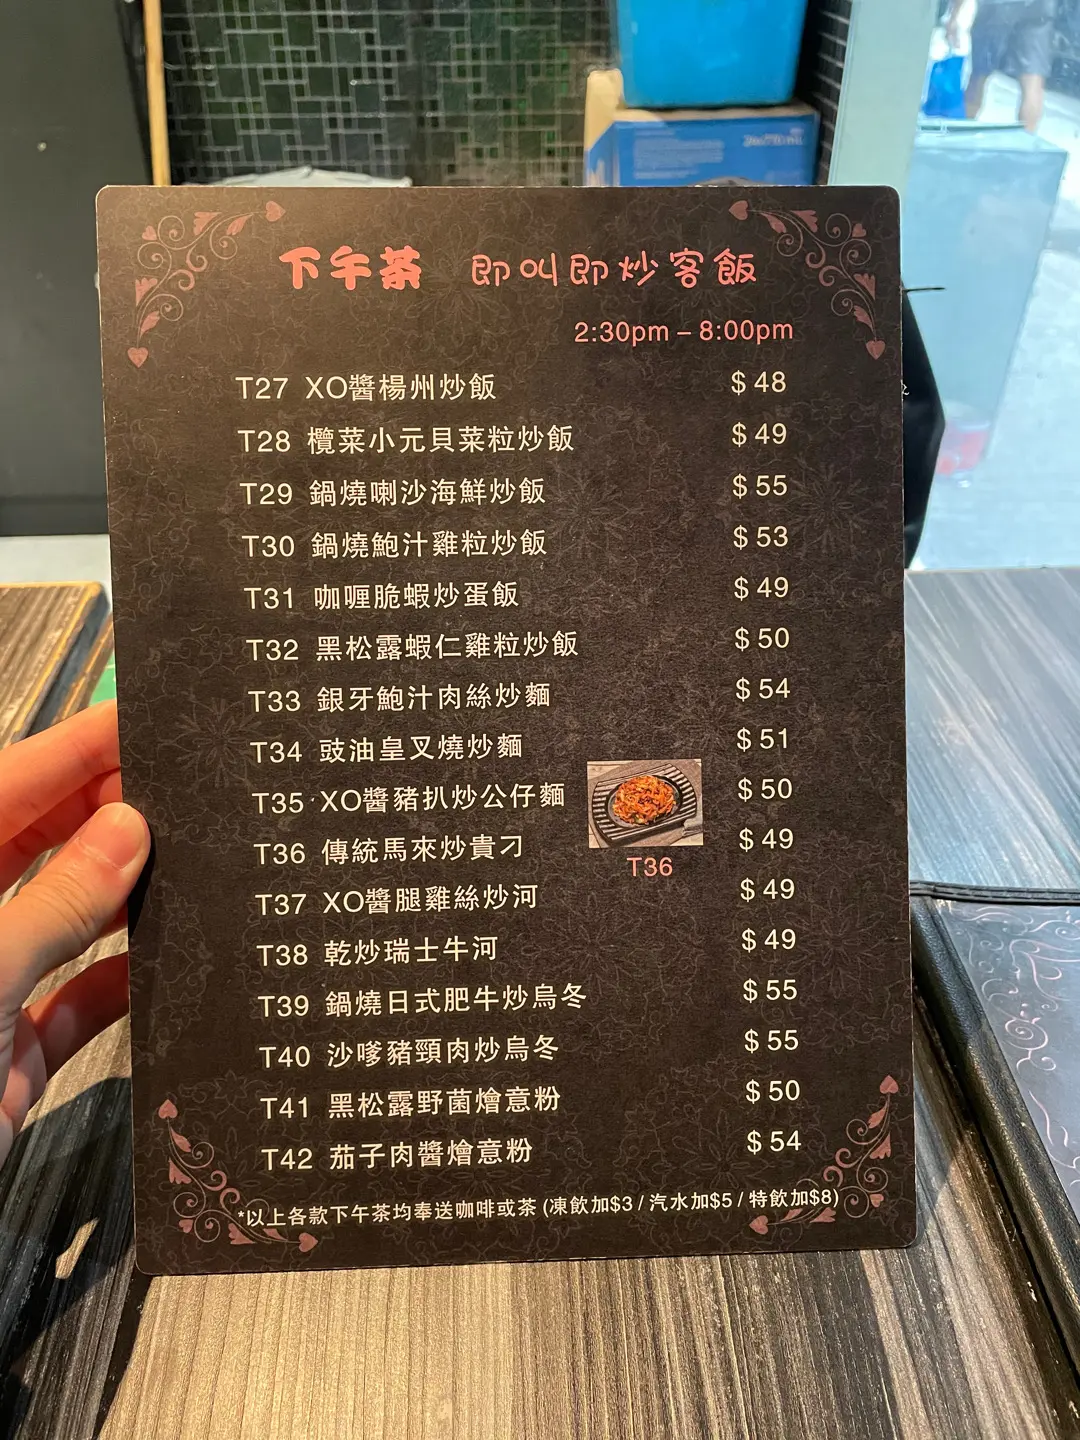 24x710 mL
下午茶 即叫即炒客飯
2:30pm – 8:00pm
T27 XO醬楊州炒飯 $48
T28 欖菜小元貝菜粒炒飯 $49
T29 鍋燒喇沙海鮮炒飯 $55
T30 鍋燒鮑汁雞粒炒飯 $53
T31 咖喱脆蝦炒蛋飯 $49
T32 黑松露蝦仁雞粒炒飯 $50
T33 銀牙鮑汁肉絲炒麵 $54
T34 豉油皇叉燒炒麵 $51
T35 XO醬豬扒炒公仔麵 $50
T36 傳統馬來炒貴刁 $49
T36
T37 XO醬腿雞絲炒河 $49
T38 乾炒瑞士牛河 $49
T39 鍋燒日式肥牛炒烏冬 $55
T40 沙嗲豬頸肉炒烏冬 $55
T41 黑松露野菌燴意粉 $50
T42 茄子肉醬燴意粉 $54
*以上各款下午茶均奉送咖啡或茶 (凍飲加$3 / 汽水加$5 / 特飲加$8)